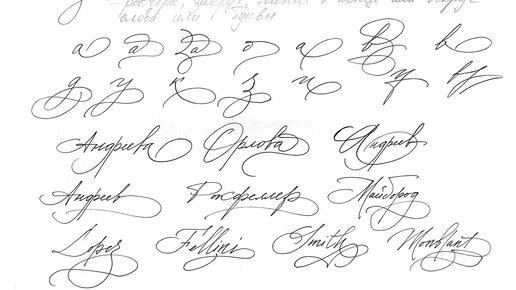 - росчерк, линия в конце или вокруг
слова или буквы
а д да о а в в
д у к з и у
Андреева Орлова Андреев
Андреев Рокфеллер Майбород
Lopez Fellini Smith Montblant